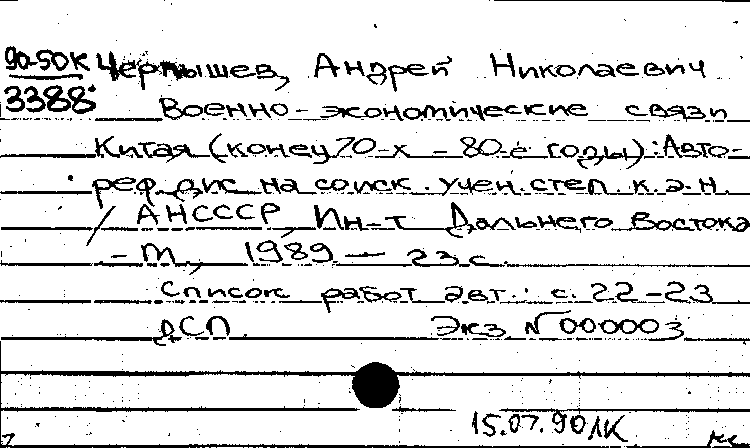 90-50К Чернышев, Андрей Николаевич
3388 Военно-экономические связи
Китая (конец 70-х – 80-е годы): Авто-
реф. дис на соиск. учен. степ. к.э.н.
/ АН СССР, Ин-т Дальнего Востока
– М., 1989 – 23 с.
Список работ авт.: с. 22-23
ДСП. Экз N 000003
15.07.90 ЛК